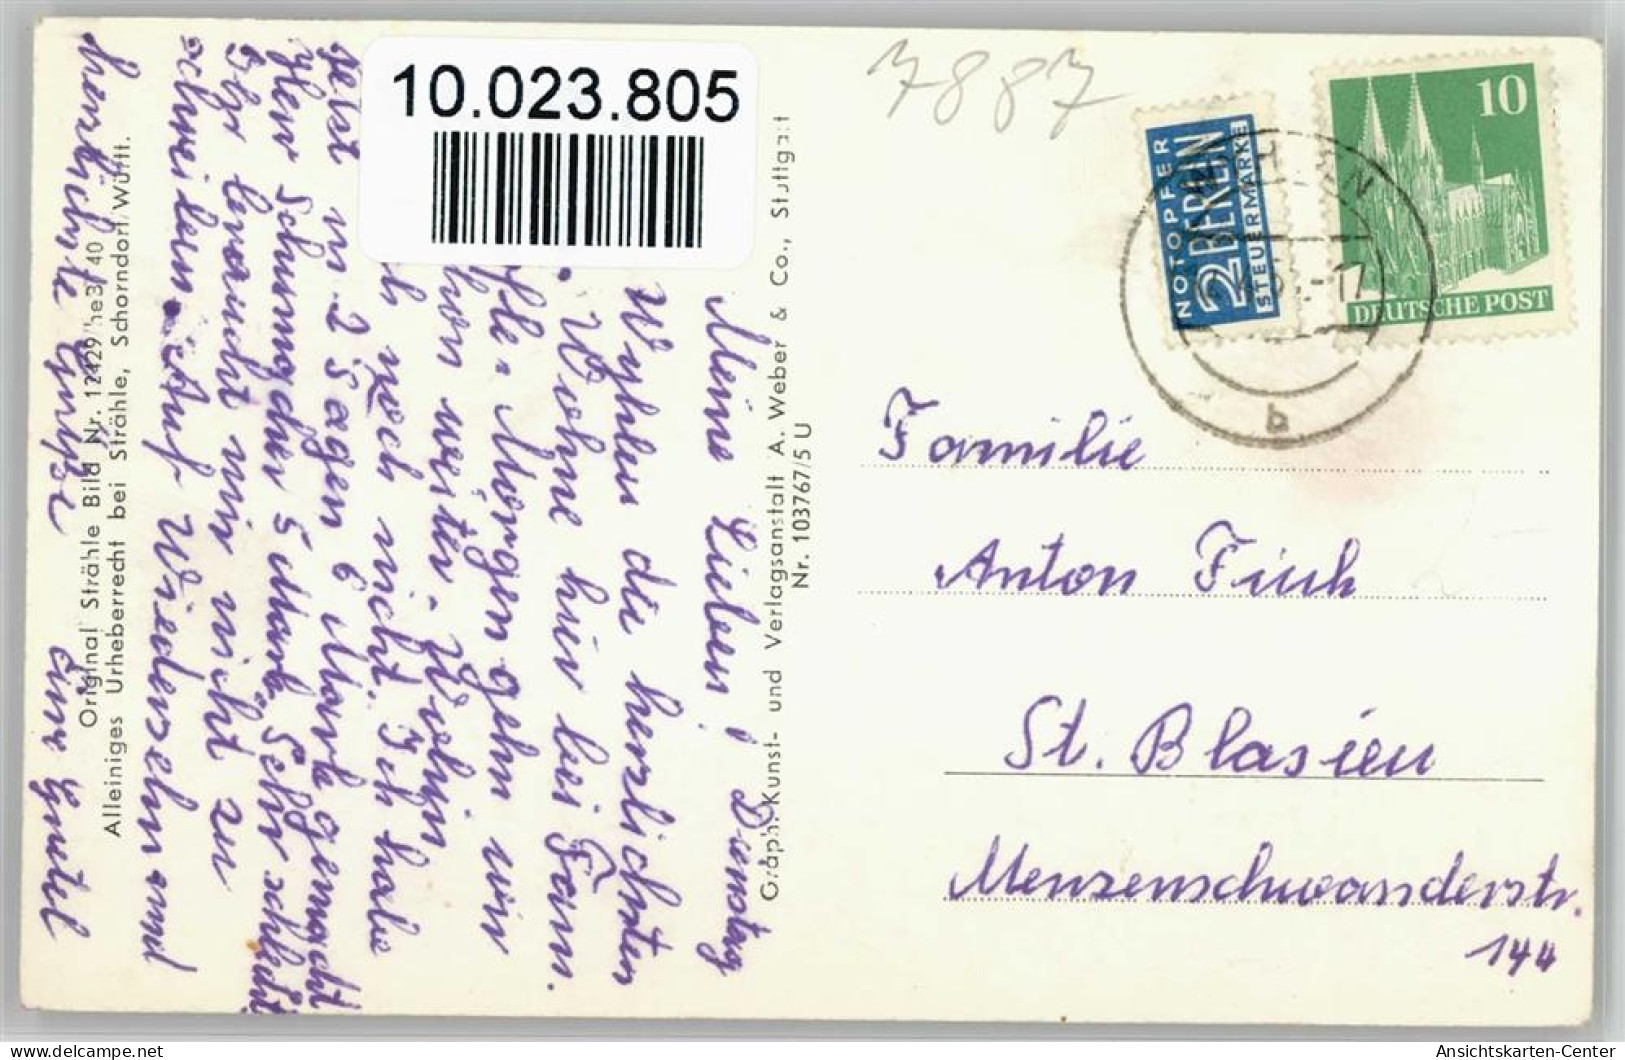 10.023.805
7887
NOTOPFER
2 BERLIN
STEUERMARKE
10
DEUTSCHE POST
b
Familie
Anton
St. Blasien
Menzenschwanderstr.
144
Graph. Kunst- und Verlagsanstalt A. Weber & Co., Stuttgart
Nr. 103767/5 U
Meine Lieben! Dienstag
die herzlichsten
Wohne hier bei Fam.
Morgen gehn wir
von weiter. Wohin
noch nicht. Ich habe
selbst in 2 Tagen 6 Mark gemacht
Herr Schumacher 5 Mark Sehr schlecht
Ihr braucht mir nicht zu
schreiben. Auf Wiedersehn und
herzlichste Grüße Eure Gretel
Original Strähle Bild Nr. 12429 he3/40
Alleiniges Urheberrecht bei Strähle, Schorndorf/Württ.
Ansichtskarten-Center